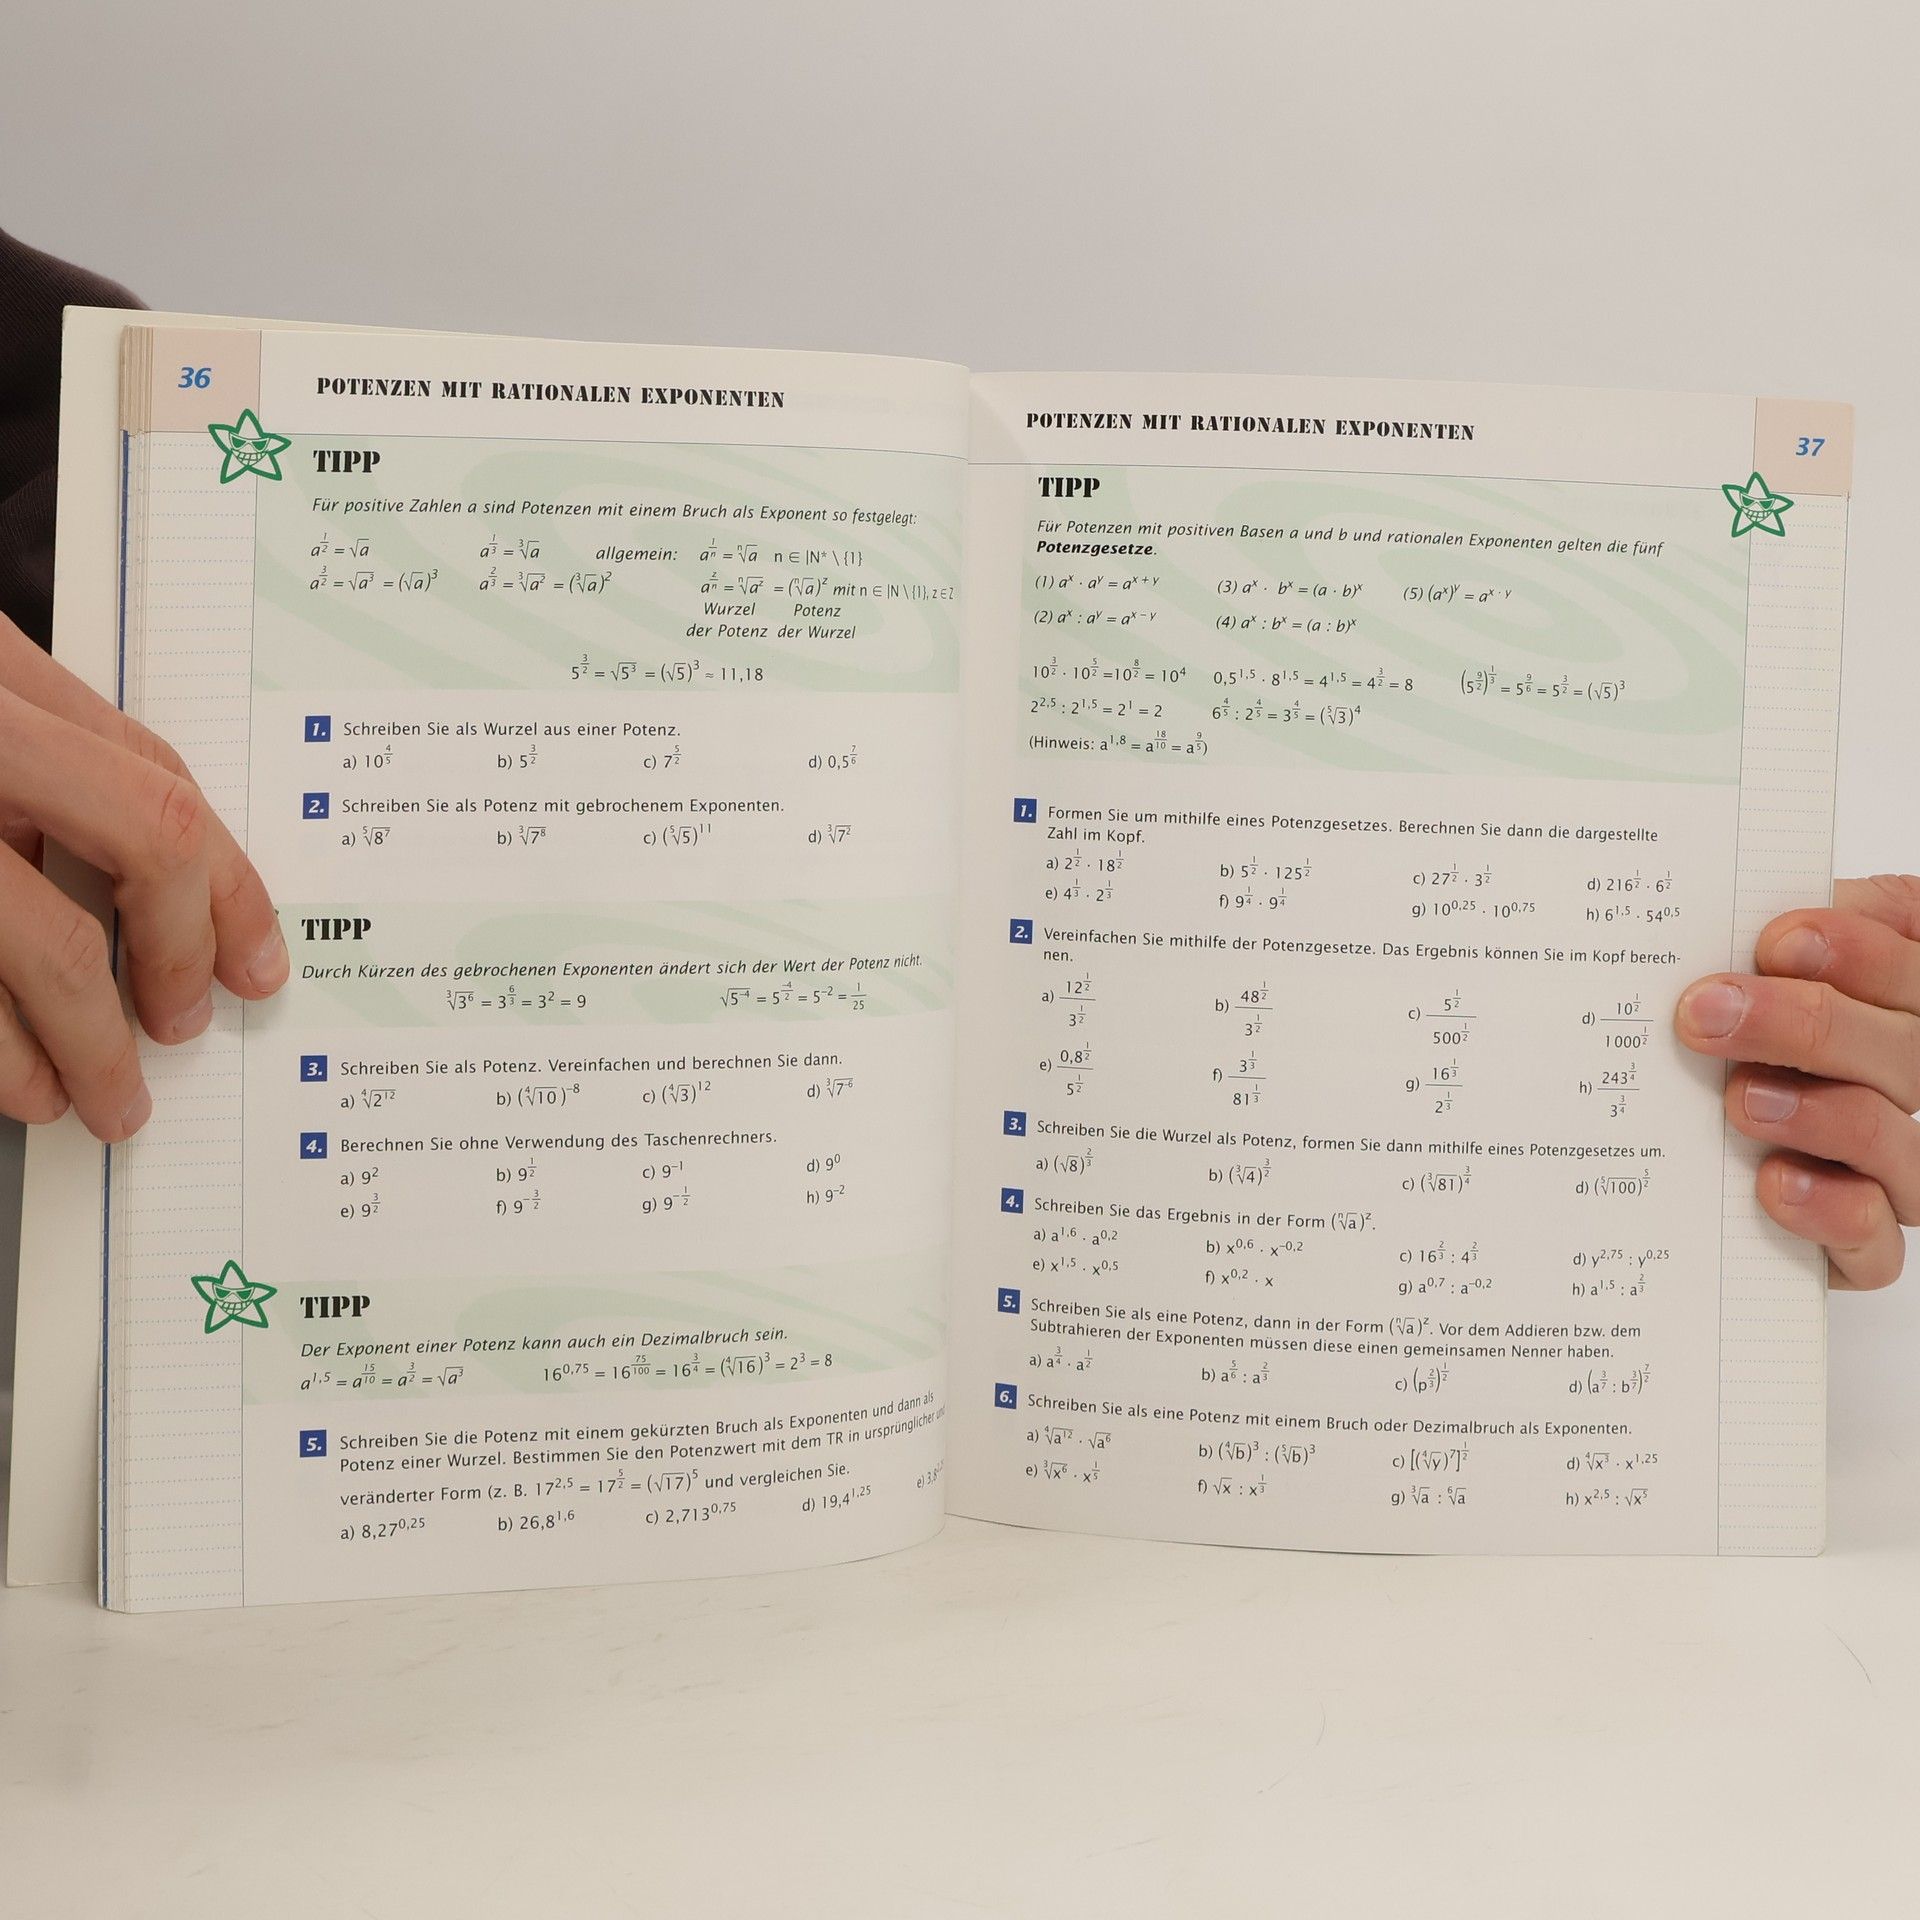 36
POTENZEN MIT RATIONALEN EXPONENTEN
TIPP
Für positive Zahlen a sind Potenzen mit einem Bruch als Exponent so festgelegt:
a^(1/2) = √a a^(1/3) = ³√a allgemein: a^(1/n) = ⁿ√a n ∈ |N* \ {1}
a^(3/2) = √(a³) = (√a)³ a^(2/3) = ³√(a²) = (³√a)² a^(z/n) = ⁿ√(a^z) = (ⁿ√a)^z mit n ∈ |N \ {1}, z ∈ Z
Wurzel Potenz
der Potenz der Wurzel
5^(3/2) = √(5³) = (√5)³ ≈ 11,18
1. Schreiben Sie als Wurzel aus einer Potenz.
a) 10^(4/5) b) 5^(3/2) c) 7^(5/2) d) 0,5^(7/6)
2. Schreiben Sie als Potenz mit gebrochenem Exponenten.
a) ⁵√(8⁷) b) ³√(7⁸) c) (⁵√5)¹¹ d) ³√(7²)
TIPP
Durch Kürzen des gebrochenen Exponenten ändert sich der Wert der Potenz nicht.
³√(3⁶) = 3^(6/3) = 3² = 9 √(5⁻⁴) = 5^(-4/2) = 5⁻² = 1/25
3. Schreiben Sie als Potenz. Vereinfachen und berechnen Sie dann.
a) ⁴√(2¹²) b) (⁴√10)⁻⁸ c) (⁴√3)¹² d) ³√(7⁻⁶)
4. Berechnen Sie ohne Verwendung des Taschenrechners.
a) 9² b) 9^(1/2) c) 9⁻¹ d) 9⁰
e) 9^(3/2) f) 9^(-3/2) g) 9^(-1/2) h) 9⁻²
TIPP
Der Exponent einer Potenz kann auch ein Dezimalbruch sein.
a^1,5 = a^(15/10) = a^(3/2) = √(a³) 16^0,75 = 16^(75/100) = 16^(3/4) = (⁴√16)³ = 2³ = 8
5. Schreiben Sie die Potenz mit einem gekürzten Bruch als Exponenten und dann als
Potenz einer Wurzel. Bestimmen Sie den Potenzwert mit dem TR in ursprünglicher und
veränderter Form (z. B. 17^2,5 = 17^(5/2) = (√17)⁵ und vergleichen Sie.
a) 8,27^0,25 b) 26,8^1,6 c) 2,713^0,75 d) 19,4^1,25 e)
POTENZEN MIT RATIONALEN EXPONENTEN
37
TIPP
Für Potenzen mit positiven Basen a und b und rationalen Exponenten gelten die fünf
Potenzgesetze.
(1) a^x · a^y = a^(x + y) (3) a^x · b^x = (a · b)^x (5) (a^x)^y = a^(x · y)
(2) a^x : a^y = a^(x – y) (4) a^x : b^x = (a : b)^x
10^(3/2) · 10^(5/2) =10^(8/2) = 10⁴ 0,5^1,5 · 8^1,5 = 4^1,5 = 4^(3/2) = 8 (5^(9/2))^(1/3) = 5^(9/6) = 5^(3/2) = (√5)³
2^2,5 : 2^1,5 = 2¹ = 2 6^(4/5) : 2^(4/5) = 3^(4/5) = (⁵√3)⁴
(Hinweis: a^1,8 = a^(18/10) = a^(9/5))
1. Formen Sie um mithilfe eines Potenzgesetzes. Berechnen Sie dann die dargestellte
Zahl im Kopf.
a) 2^(1/2) · 18^(1/2) b) 5^(1/2) · 125^(1/2) c) 27^(1/2) · 3^(1/2) d) 216^(1/2) · 6^(1/2)
e) 4^(1/3) · 2^(1/3) f) 9^(1/4) · 9^(1/4) g) 10^0,25 · 10^0,75 h) 6^1,5 · 54^0,5
2. Vereinfachen Sie mithilfe der Potenzgesetze. Das Ergebnis können Sie im Kopf berech-
nen.
a) 12^(1/2) / 3^(1/2) b) 48^(1/2) / 3^(1/2) c) 5^(1/2) / 500^(1/2) d) 10^(1/2) / 1000^(1/2)
e) 0,8^(1/2) / 5^(1/2) f) 3^(1/3) / 81^(1/3) g) 16^(1/3) / 2^(1/3) h) 243^(3/4) / 3^(3/4)
3. Schreiben Sie die Wurzel als Potenz, formen Sie dann mithilfe eines Potenzgesetzes um.
a) (√8)^(2/3) b) (³√4)^(3/2) c) (³√81)^(3/4) d) (⁵√100)^(5/2)
4. Schreiben Sie das Ergebnis in der Form (ⁿ√a)^z.
a) a^1,6 · a^0,2 b) x^0,6 · x^–0,2 c) 16^(2/3) : 4^(2/3) d) y^2,75 : y^0,25
e) x^1,5 · x^0,5 f) x^0,2 · x g) a^0,7 : a^–0,2 h) a^1,5 : a^(2/3)
5. Schreiben Sie als eine Potenz, dann in der Form (ⁿ√a)^z. Vor dem Addieren bzw. dem
Subtrahieren der Exponenten müssen diese einen gemeinsamen Nenner haben.
a) a^(3/4) · a^(1/2) b) a^(5/6) : a^(2/3) c) (p^(2/3))^(1/2) d) (a^(3/7) : b^(3/7))^(7/2)
6. Schreiben Sie als eine Potenz mit einem Bruch oder Dezimalbruch als Exponenten.
a) ⁴√(a¹²) · √(a⁶) b) (⁴√b)³ : (⁵√b)³ c) [(⁴√y)⁷]^(1/2) d) ⁴√(x³) · x^1,25
e) ³√(x⁶) · x^(1/5) f) √x : x^(1/3) g) ³√a : ⁶√a h) x^2,5 : √(x⁵)